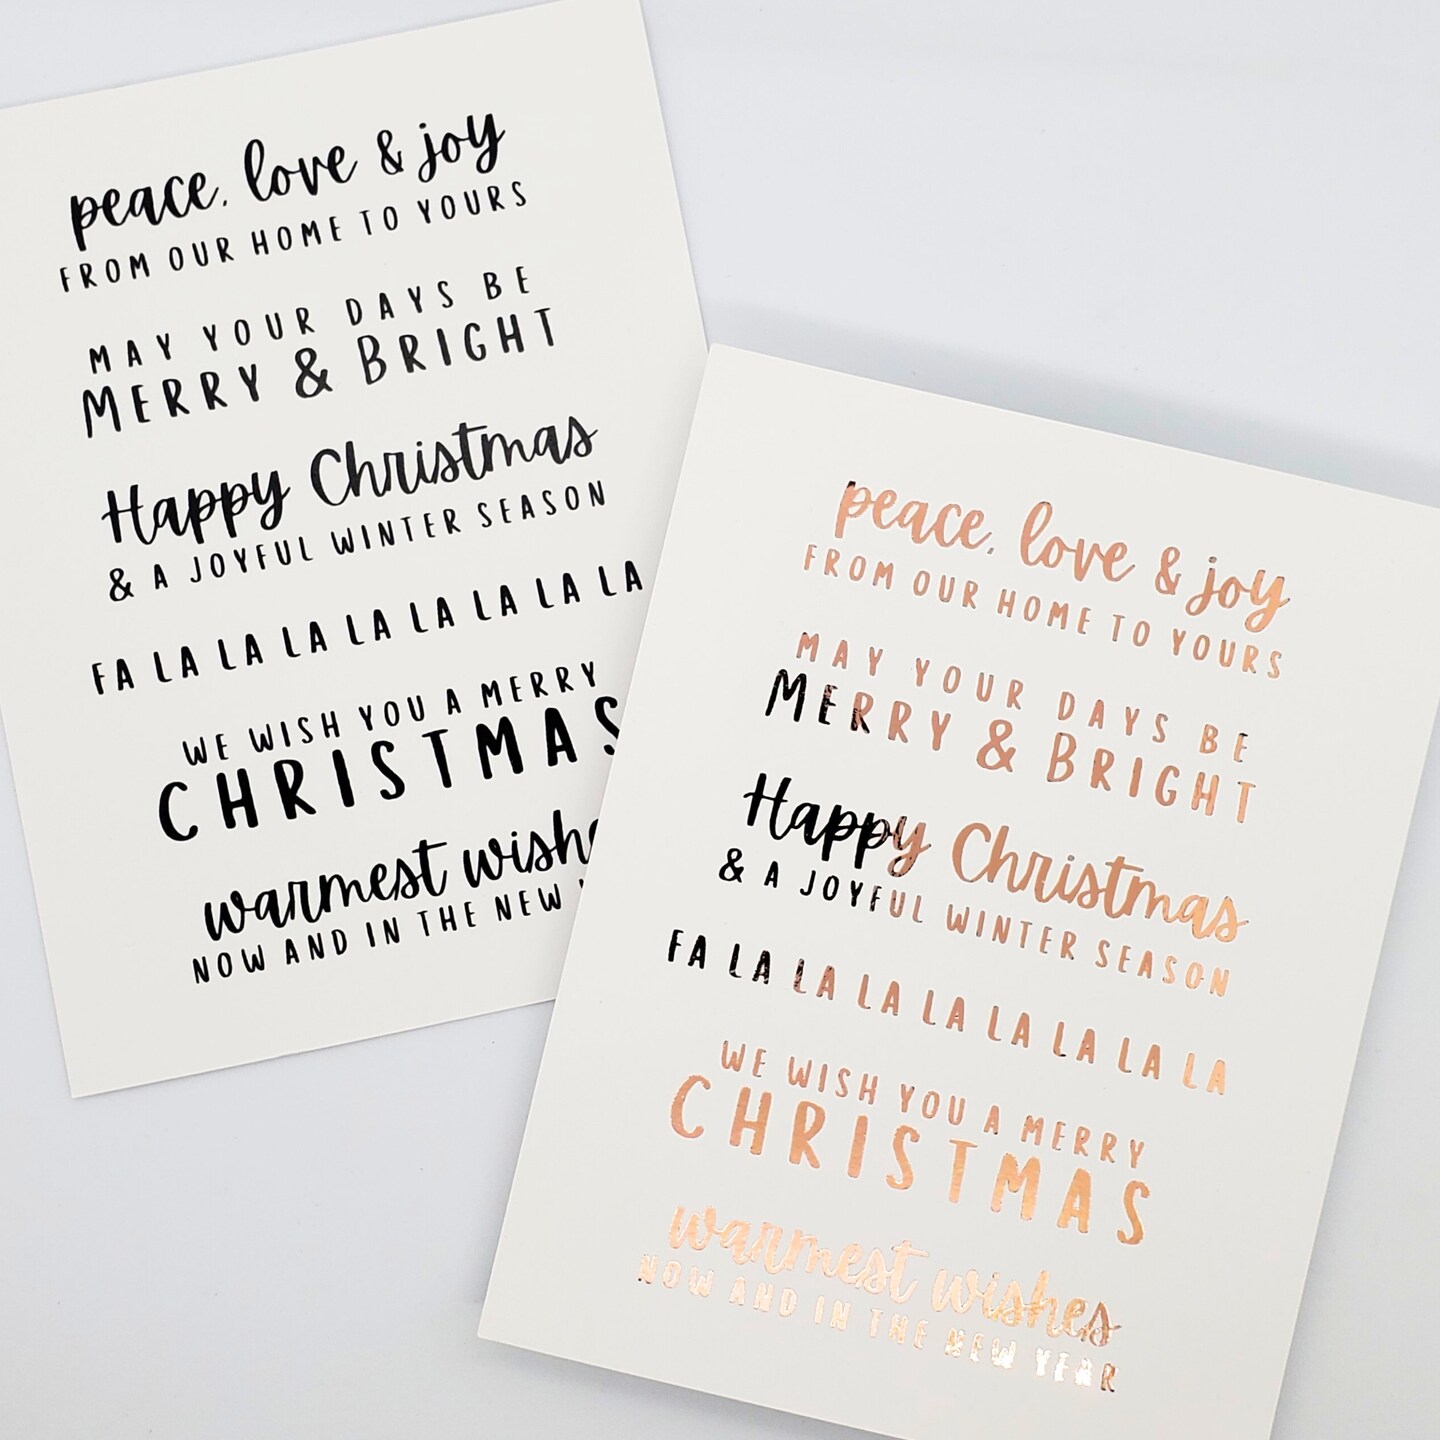 peace, love & joy
FROM OUR HOME TO YOURS
MAY YOUR DAYS BE
MERRY & BRIGHT
Happy Christmas
& A JOYFUL WINTER SEASON
FA LA LA LA LA LA LA LA LA
WE WISH YOU A MERRY
CHRISTMAS
warmest wishe
NOW AND IN THE NEW
peace, love & joy
FROM OUR HOME TO YOURS
MAY YOUR DAYS BE
MERRY & BRIGHT
Happy Christmas
& A JOYFUL WINTER SEASON
FA LA LA LA LA LA LA LA LA
WE WISH YOU A MERRY
CHRISTMAS
warmest wishes
NOW AND IN THE NEW YEAR